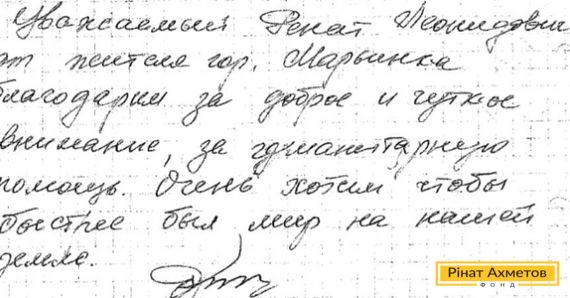 Уважаемый Ренат Леонидович
от жителя гор. Марьинка
благодарим за доброе и чуткое
внимание, за гуманитарную
помощь. Очень хотим чтобы
быстрее был мир на нашей
земле.
Рінат Ахметов
ФОНД